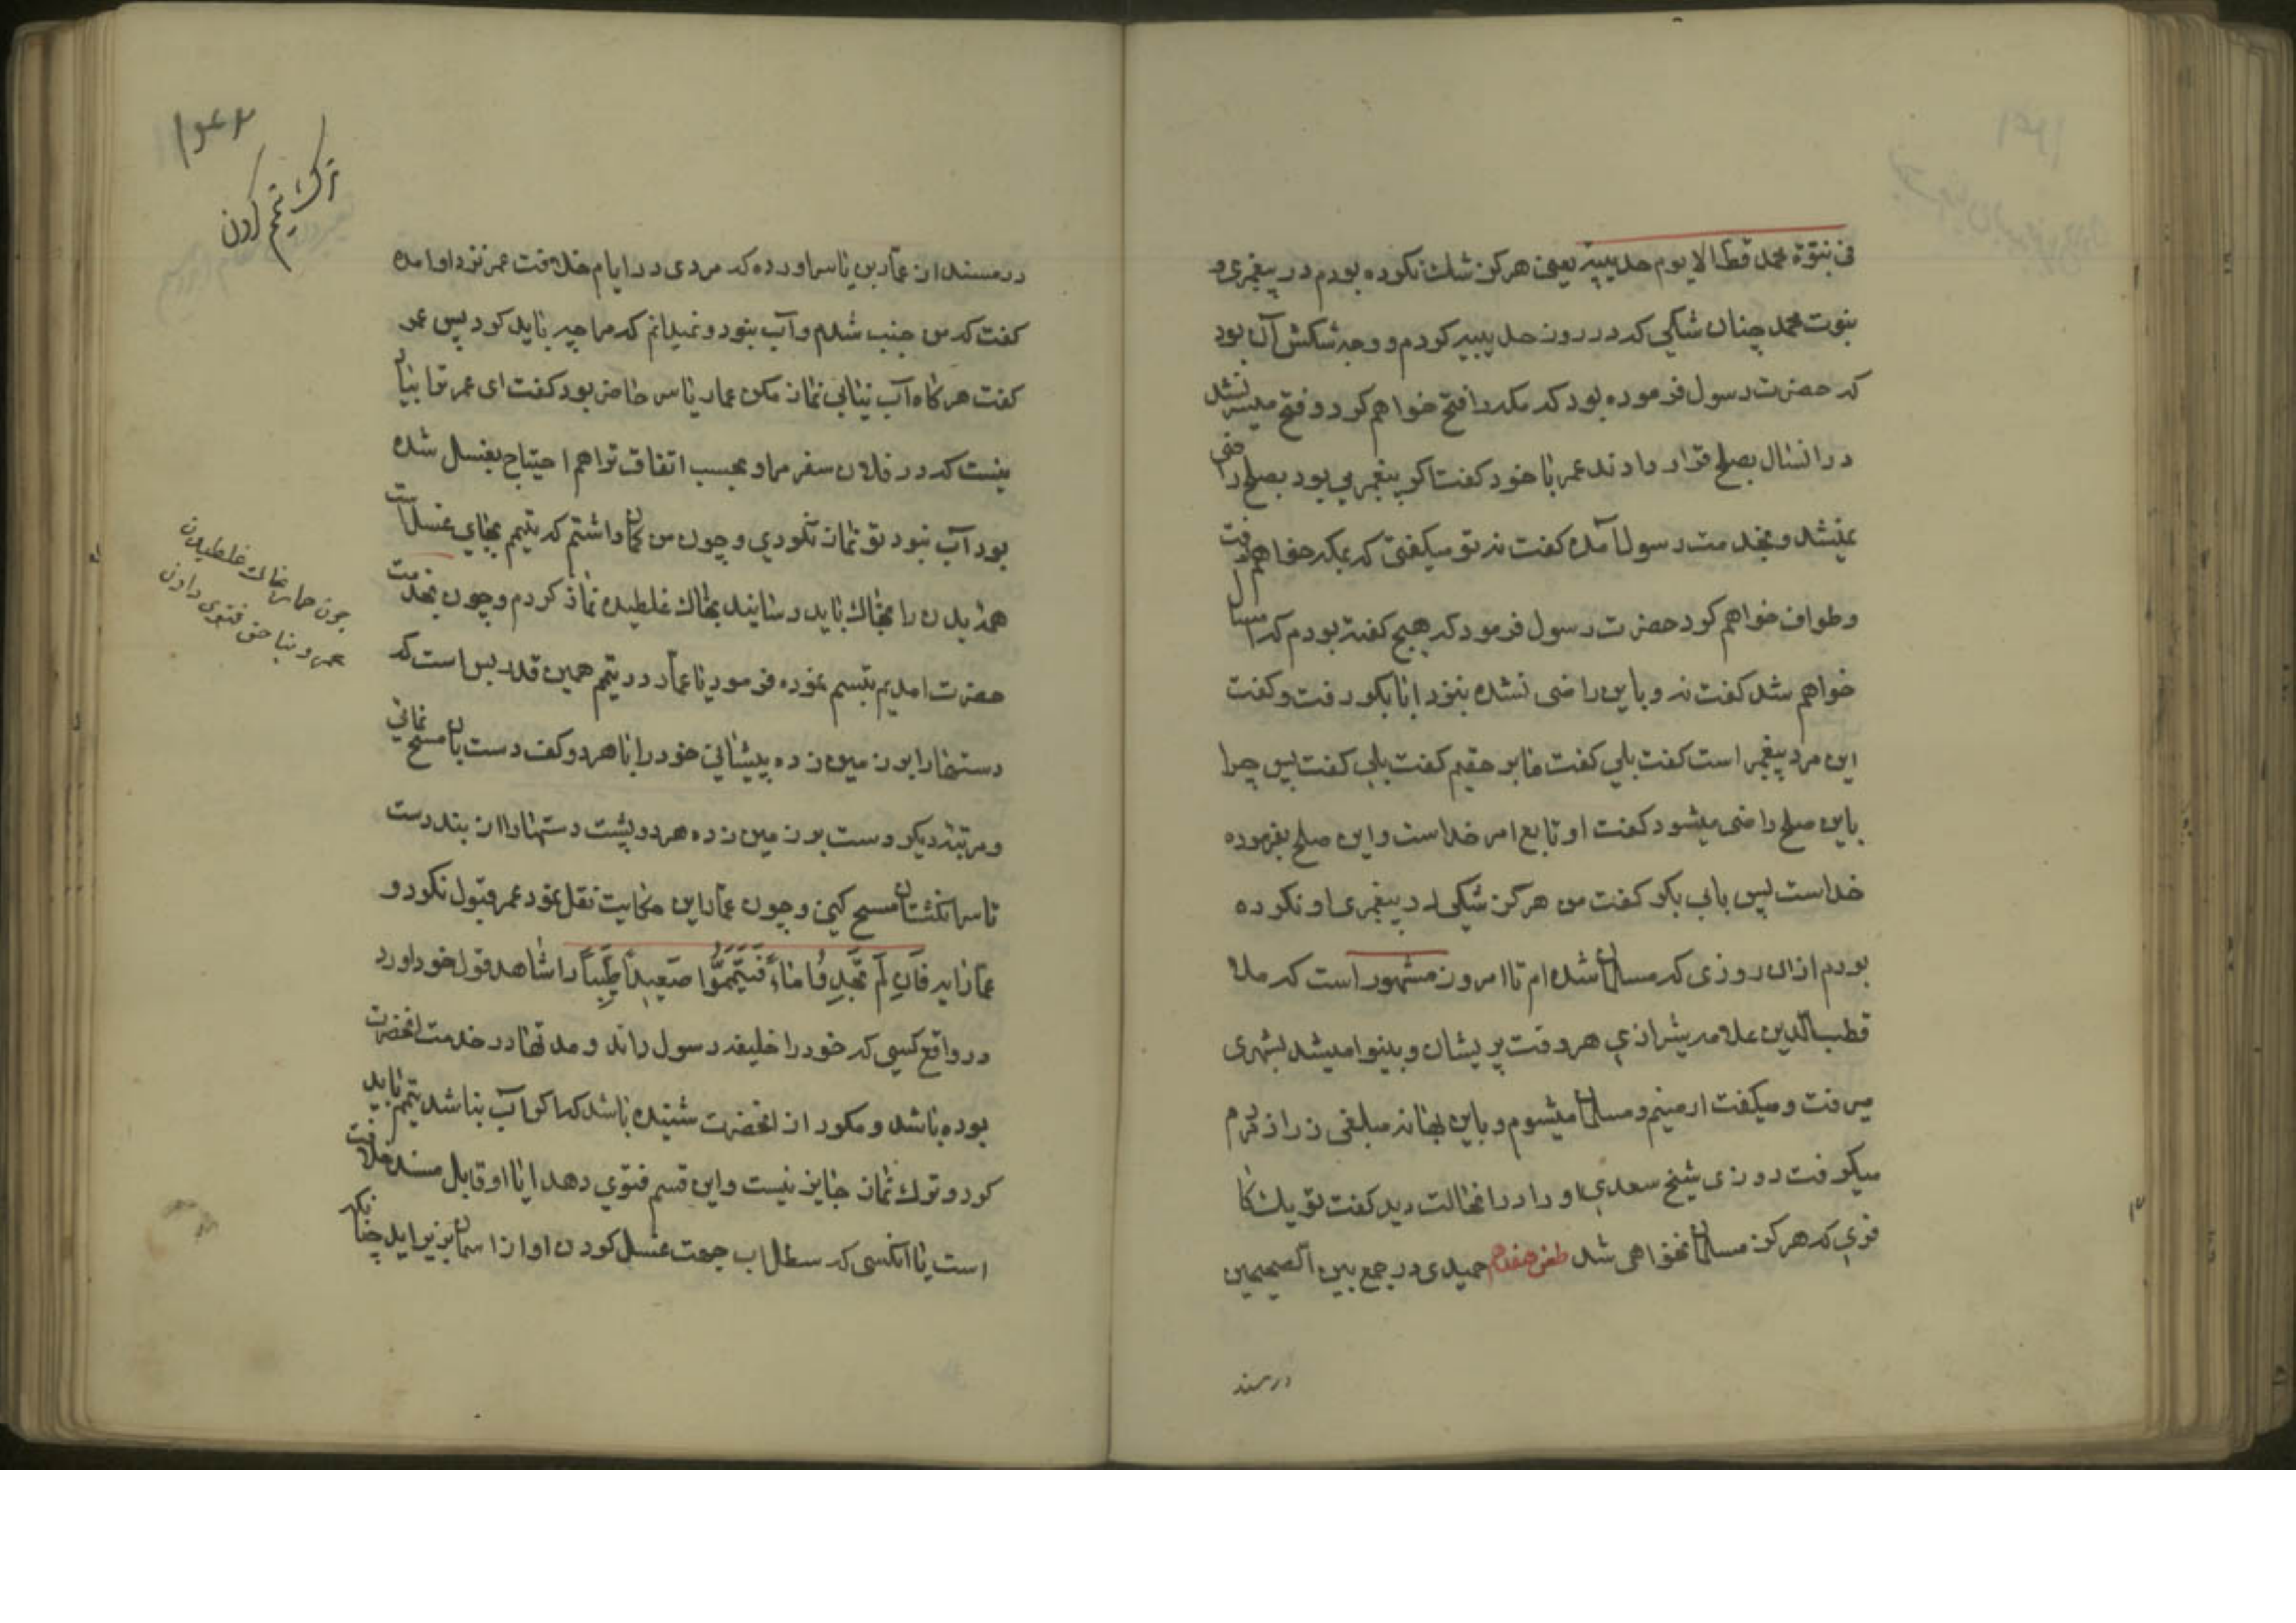 فی نبوّة محمد قطّ الا یوم حدیبیة یعنی هرکز شک نکرده بودم در پیغمبری و
نبوت محمد چنان شکی که در روز حدیبیه کردم و وجه شکش آن بود
که حضرت رسول فرموده بود که مکه را فتح خواهم کرد و فتح میسر نشد
در انسال بصلح قرار دادند عمر با خود کفت اکر پیغمبر می بود بصلح راضی
نمیشد و بخدمت رسول آمده کفت نه تو میکفتی که بمکه خواهم رفت
و طواف خواهم کرد حضرت رسول فرمود که هیچ کفته بودم که امسال
خواهم شد کفت نه و باین راضی نشده بنزد ابابکر رفت و کفت
این مرد پیغمبر است کفت بلی کفت ما بر حقیم کفت بلی کفت پس چرا
باین صلح راضی میشود کفت او تابع امر خداست و این صلح بفرموده
خداست پس بابی بکر کفت من هرکز شکی در پیغمبری او نکرده
بودم از ان روزی که مسلمان شده ام تا امروز مشهور است که ملا
قطب الدین علامه شیرازی هر وقت پریشان و بینوا میشد بشهری
میرفت و میکفت ارمنیم و مسلمان میشوم و باین بهانه مبلغی زر از مردم
میکرفت روزی شیخ سعدی او را در انحالت دید کفت تو یک کا
فری که هرکز مسلمان نخواهی شد طعن هفدهم حمیدی در جمع بین الصحیحین
در مسند
۱۶۴۲
ترک تیمم کردن
در مسند از عمّار بن یاسر اورده که مردی در ایام خلافت عمر نزد او امده
کفت که من جنب شدم و آب نبود و نمیدانم که مرا چه باید کرد پس عمر
کفت هرکاه آب نیابی نماز مکن عمار یاسر حاضر بود کفت ای عمر ترا بیاد
نیست که در فلان سفر مرا و بحسب اتفاق ترا هم احتیاج بغسل شده
بود آب نبود تو نماز نکردی و چون من کمان داشتم که تیمم بجای غسل است
همه بدن را بخاک باید رسانید بخاک غلطیده نماز کردم و چون بخدمت
حضرت امدیم تبسم نموده فرمود یا عمّار در تیمم همین قدر بس است که
دستها را بر زمین زده پیشانی خود را با هر دو کف دست بان مسح نمائی
و مرتبه دیکر دست بر زمین زده هر دو پشت دستها را از بند دست
تا سر انکشتان مسح کنی و چون عمّار این حکایت نقل نمود عمر قبول نکرد و
عمّار ایه فَاِن لَم تَجِدُوا مَاءً فَتَیَمَّمُوا صَعِیداً طَیِّباً را شاهد قول خود اورد
در واقع کسی که خود را خلیفه رسول داند و مدتها در خدمت انحضرت
بوده باشد و مکرر از انحضرت شنیده باشد که اکر آب نباشد تیمم باید
کرد و ترک نماز جایز نیست و این قسم فتوی دهد ایا او قابل مسند خلافت
است یا انکسی که سطل اب جهت غسل کردن او از اسمان بزیر اید چنانکه
چون حمار بخاک غلطیدن
عمر و بناحق فتوی دادن